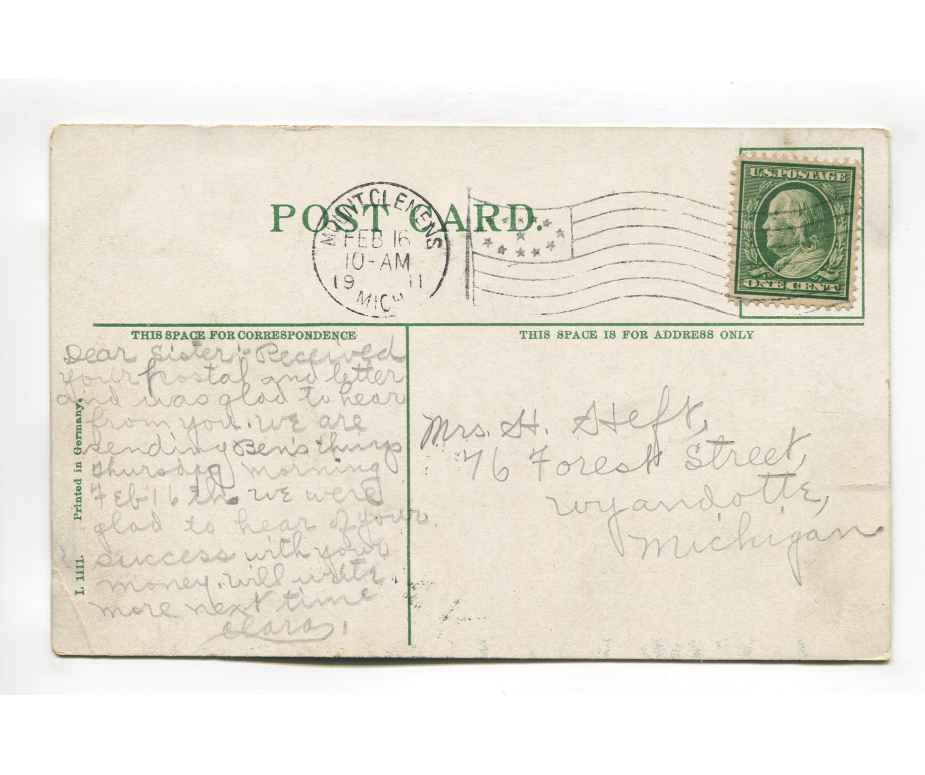 POST CARD.
MOUNT CLEMENS
FEB 16
10-AM
19 11
MICH.
U.S. POSTAGE
ONE CENT
THIS SPACE FOR CORRESPONDENCE
THIS SPACE IS FOR ADDRESS ONLY
Dear Sister: Received
your postal and letter
and was glad to hear
from you. We are
sending Ben's things
thursday morning
Feb 16 th. We were
glad to hear of your
success with your
money. will write
more next time
Clara,
Mrs. H. Heft,
76 Forest Street,
Wyandotte,
Michigan
I. 1111. Printed in Germany.